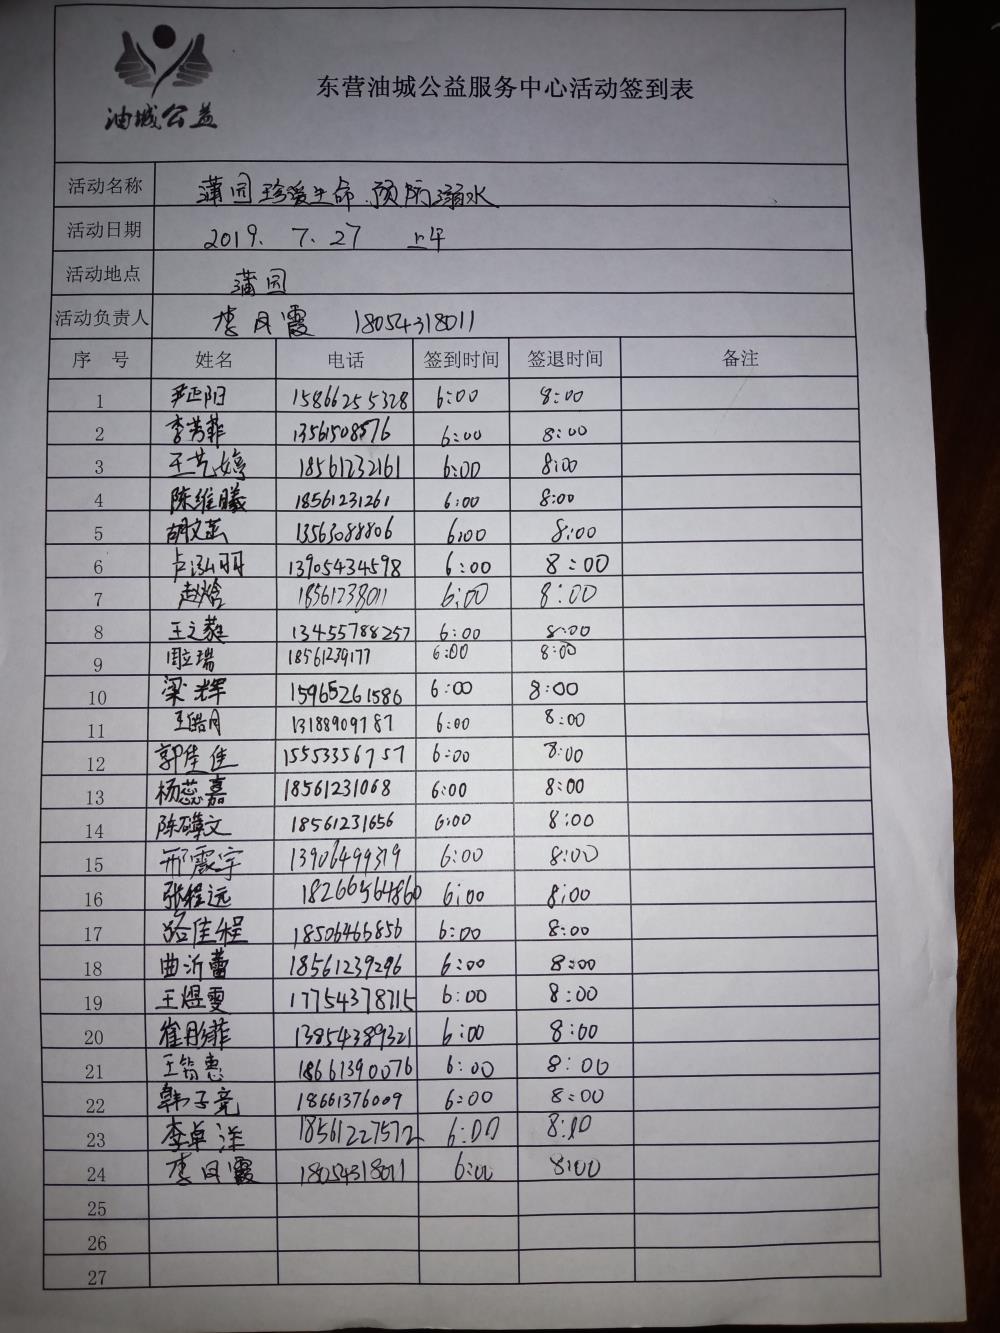 油城公益
东营油城公益服务中心活动签到表
活动名称 蒲园珍爱生命.预防溺水
活动日期 2019. 7. 27 上午
活动地点 蒲园
活动负责人 李月霞 18054318011
序 号 姓名 电话 签到时间 签退时间 备注
1 尹正阳 15866255328 6:00 8:00
2 李芳菲 13561508576 6:00 8:00
3 王艺婷 18561232161 6:00 8:00
4 陈维曦 18561231261 6:00 8:00
5 胡文 13563088806 6:00 8:00
6 卢泓羽 13905434598 6:00 8:00
7 赵焓 18561238011 6:00 8:00
8 王之蕤 13455788257 6:00 8:00
9 周立瑞 18561239177 6:00 8:00
10 梁辉 15965261586 6:00 8:00
11 王皓月 13188909787 6:00 8:00
12 郭佳佳 15553356757 6:00 8:00
13 杨蕊嘉 18561231068 6:00 8:00
14 陈文 18561231656 6:00 8:00
15 邢震宇 13906499319 6:00 8:00
16 张程远 18266564860 6:00 8:00
17 路佳程 18506465856 6:00 8:00
18 曲沂蕾 18561239296 6:00 8:00
19 王煜雯 17754378715 6:00 8:00
20 崔彤菲 13854389321 6:00 8:00
21 王筠惠 18661390076 6:00 8:00
22 韩子竞 18661376009 6:00 8:00
23 李卓洋 18561227572 6:00 8:00
24 李月霞 18054318011 6:00 8:00
25
26
27